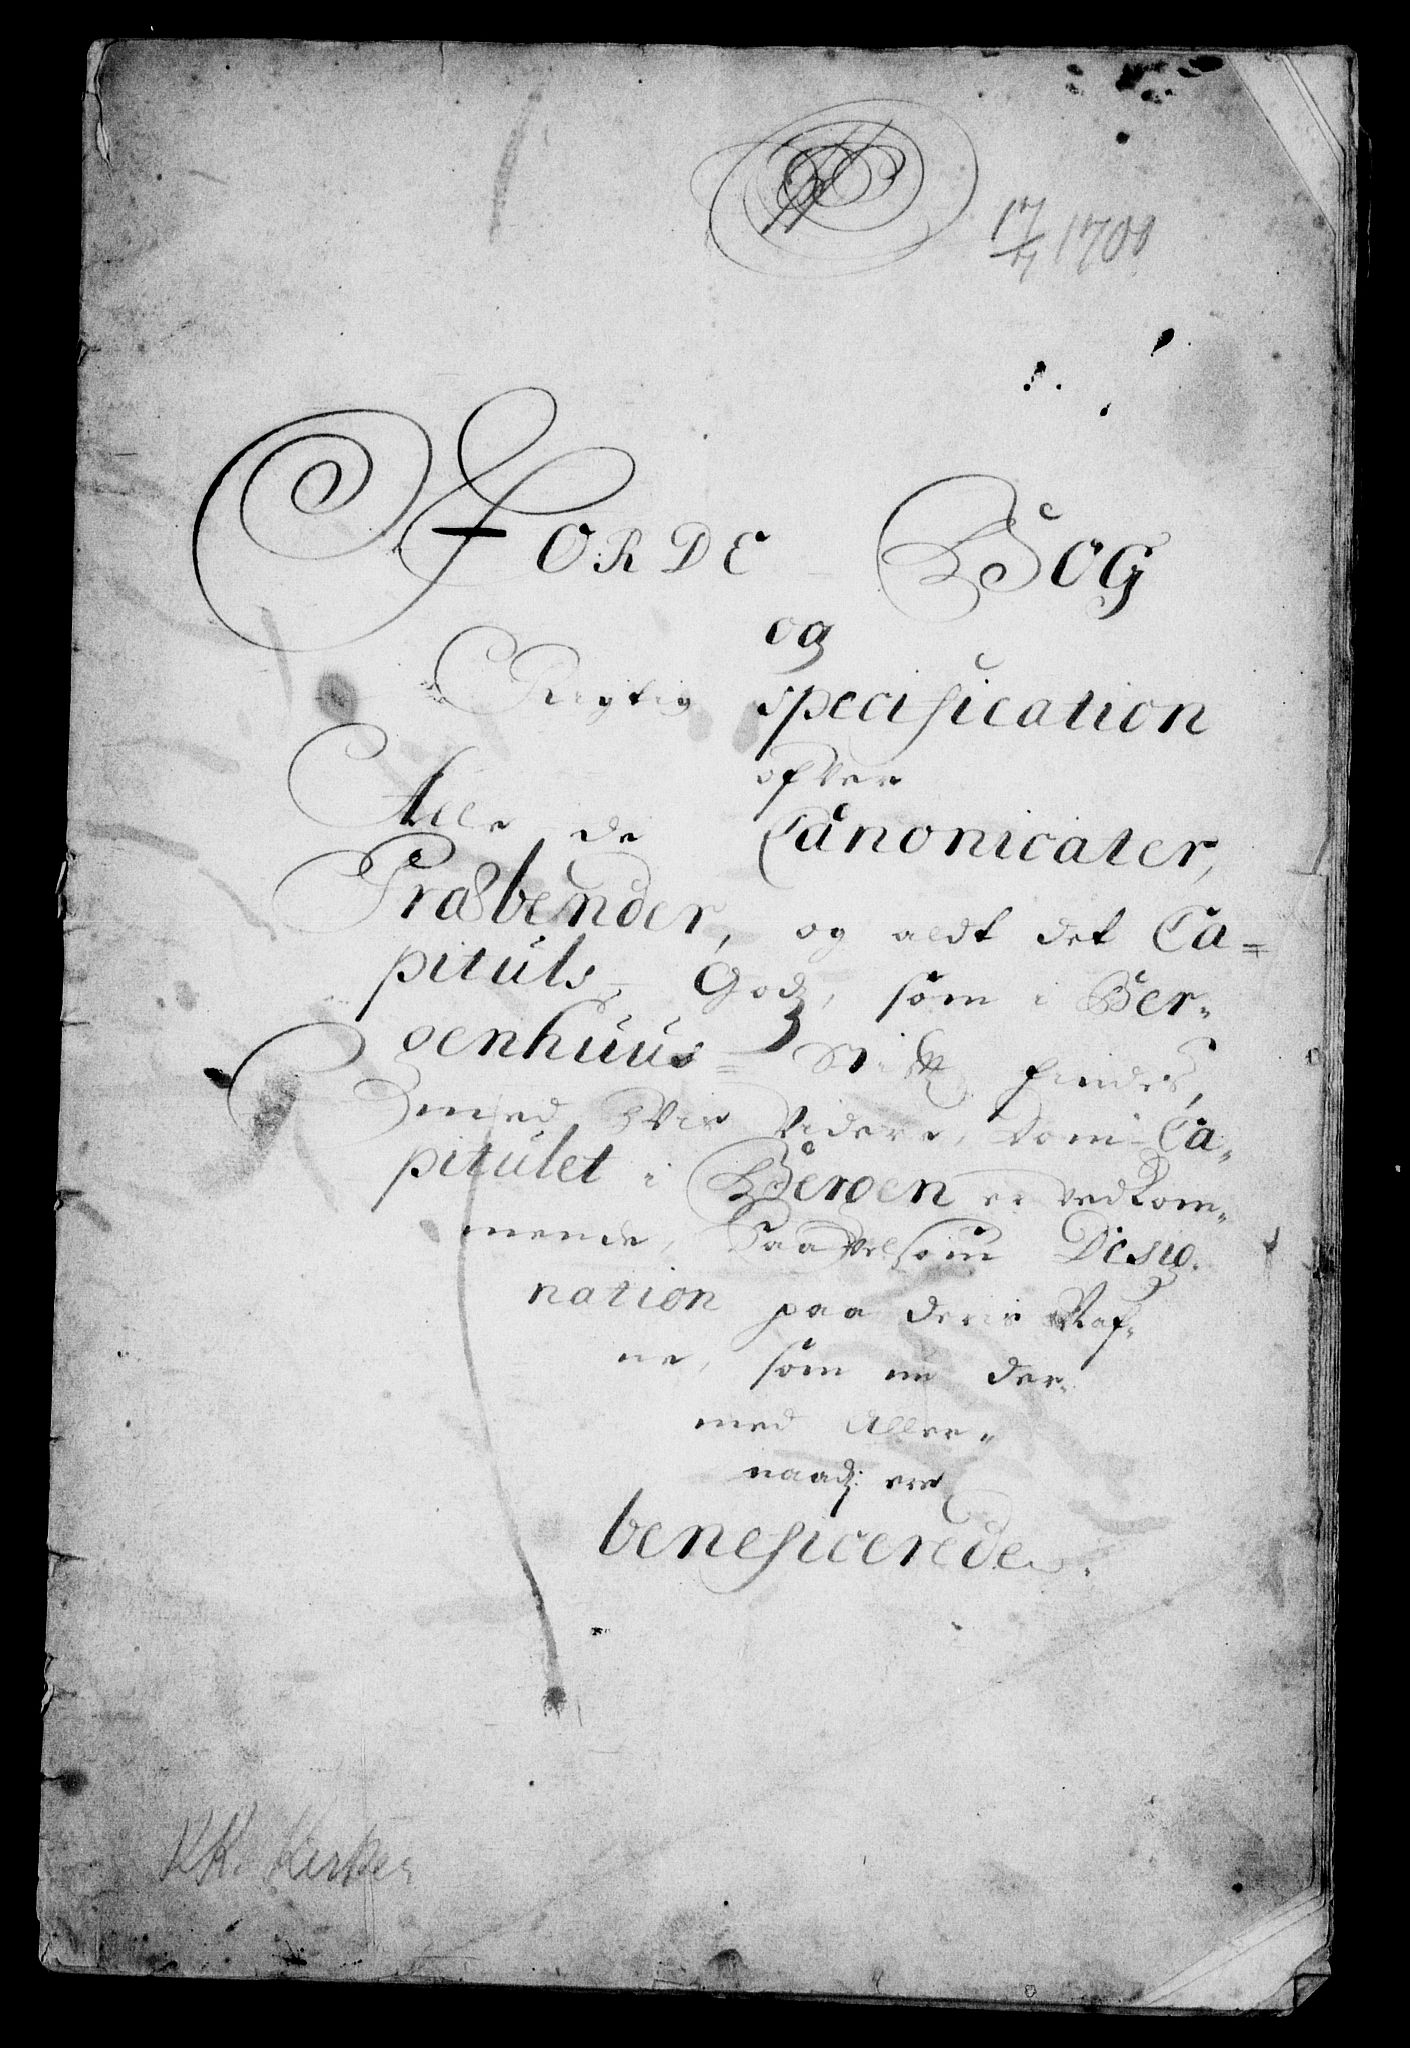 17/7 1700
Jorde Bog
og
Rigtig Specification
ofver
Alle de Canonicater,
Præbender, og aldt det Ca=
pituls Godz, som i Ber-
genhuus= Stift findes,
med hvis videre, som Ca-
pitulet i Bergen er vedkom-
mende, Saavelsom Desig-
nation paa deris Nafne
ne, som nu der-
med Aller-
naadz: ere
beneficerede.
KK. Kirker